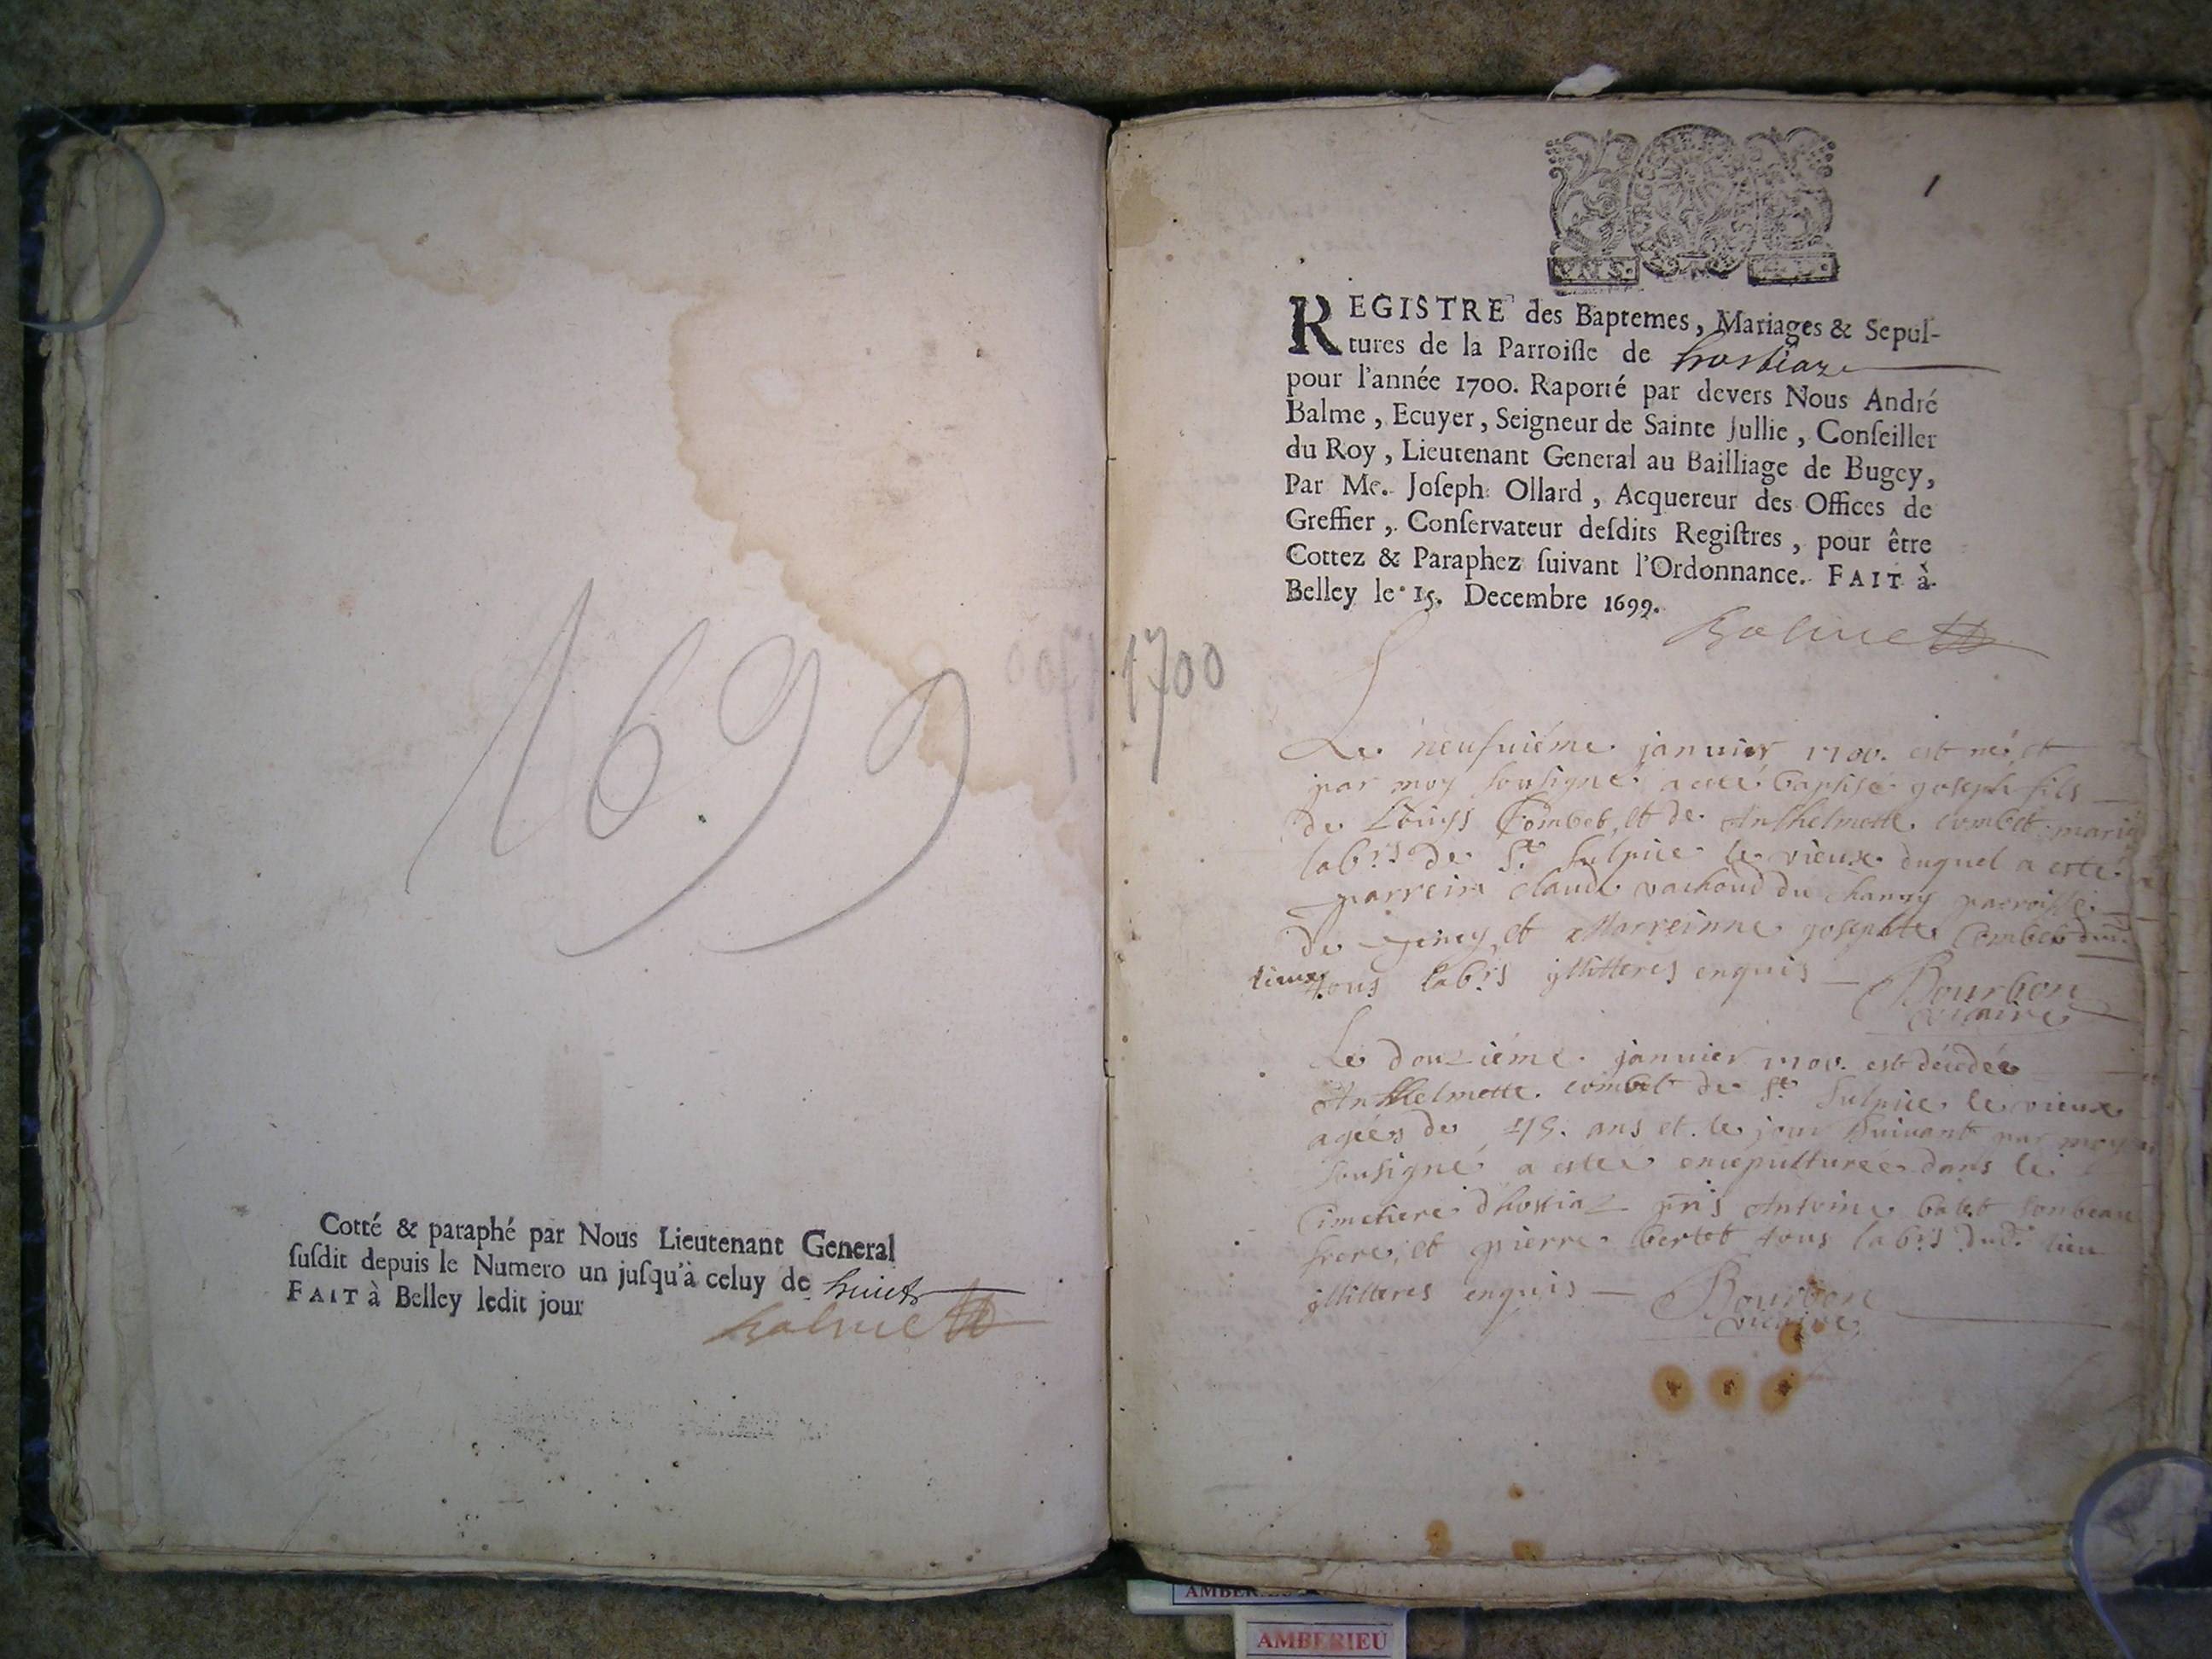 1699
Cotté & paraphé par Nous Lieutenant General
ſuſdit depuis le Numero un juſqu'à celuy de huict
FAIT à Belley ledit jour
Balme
1
REGISTRE des Baptemes, Mariages & Sepul-
tures de la Parroiſſe de hostiaz
pour l'année 1700. Raporté par devers Nous André
Balme, Ecuyer, Seigneur de Sainte Jullie, Conſeiller
du Roy, Lieutenant General au Bailliage de Bugey,
Par Me. Joſeph Ollard, Acquereur des Offices de
Greffier, Conſervateur deſdits Regiſtres, pour être
Cottez & Paraphez ſuivant l'Ordonnance. FAIT à
Belley le 15. Decembre 1699.
Balme
1700
Le neufuiéme januier 1700. est né, et
par moy sousigné a esté baptisé joseph fils
de Louys Combet, et de Anthelmette combet mariés
lab.rs de S.t Sulpice le vieux duquel a esté
parrein claude vachoud du parroisse
de et Marreinne josephte Combet dud.
lieux
tous lab.rs jllitteres enquis Bourbon
vicaire
Le douziéme januier 1700. est décédée
Anthelmette combet de S.t Sulpice le vieux
agées de 45. ans et le jour suiuant par moy
sousigné a estée ensepulturée dans le
Cimetiere dhostiaz pñs Antoine balet son beau
frere, et pierre bertet tous lab.rs dud. lieu
jllitteres enquis Bourbon
vicaire
AMBERIEU